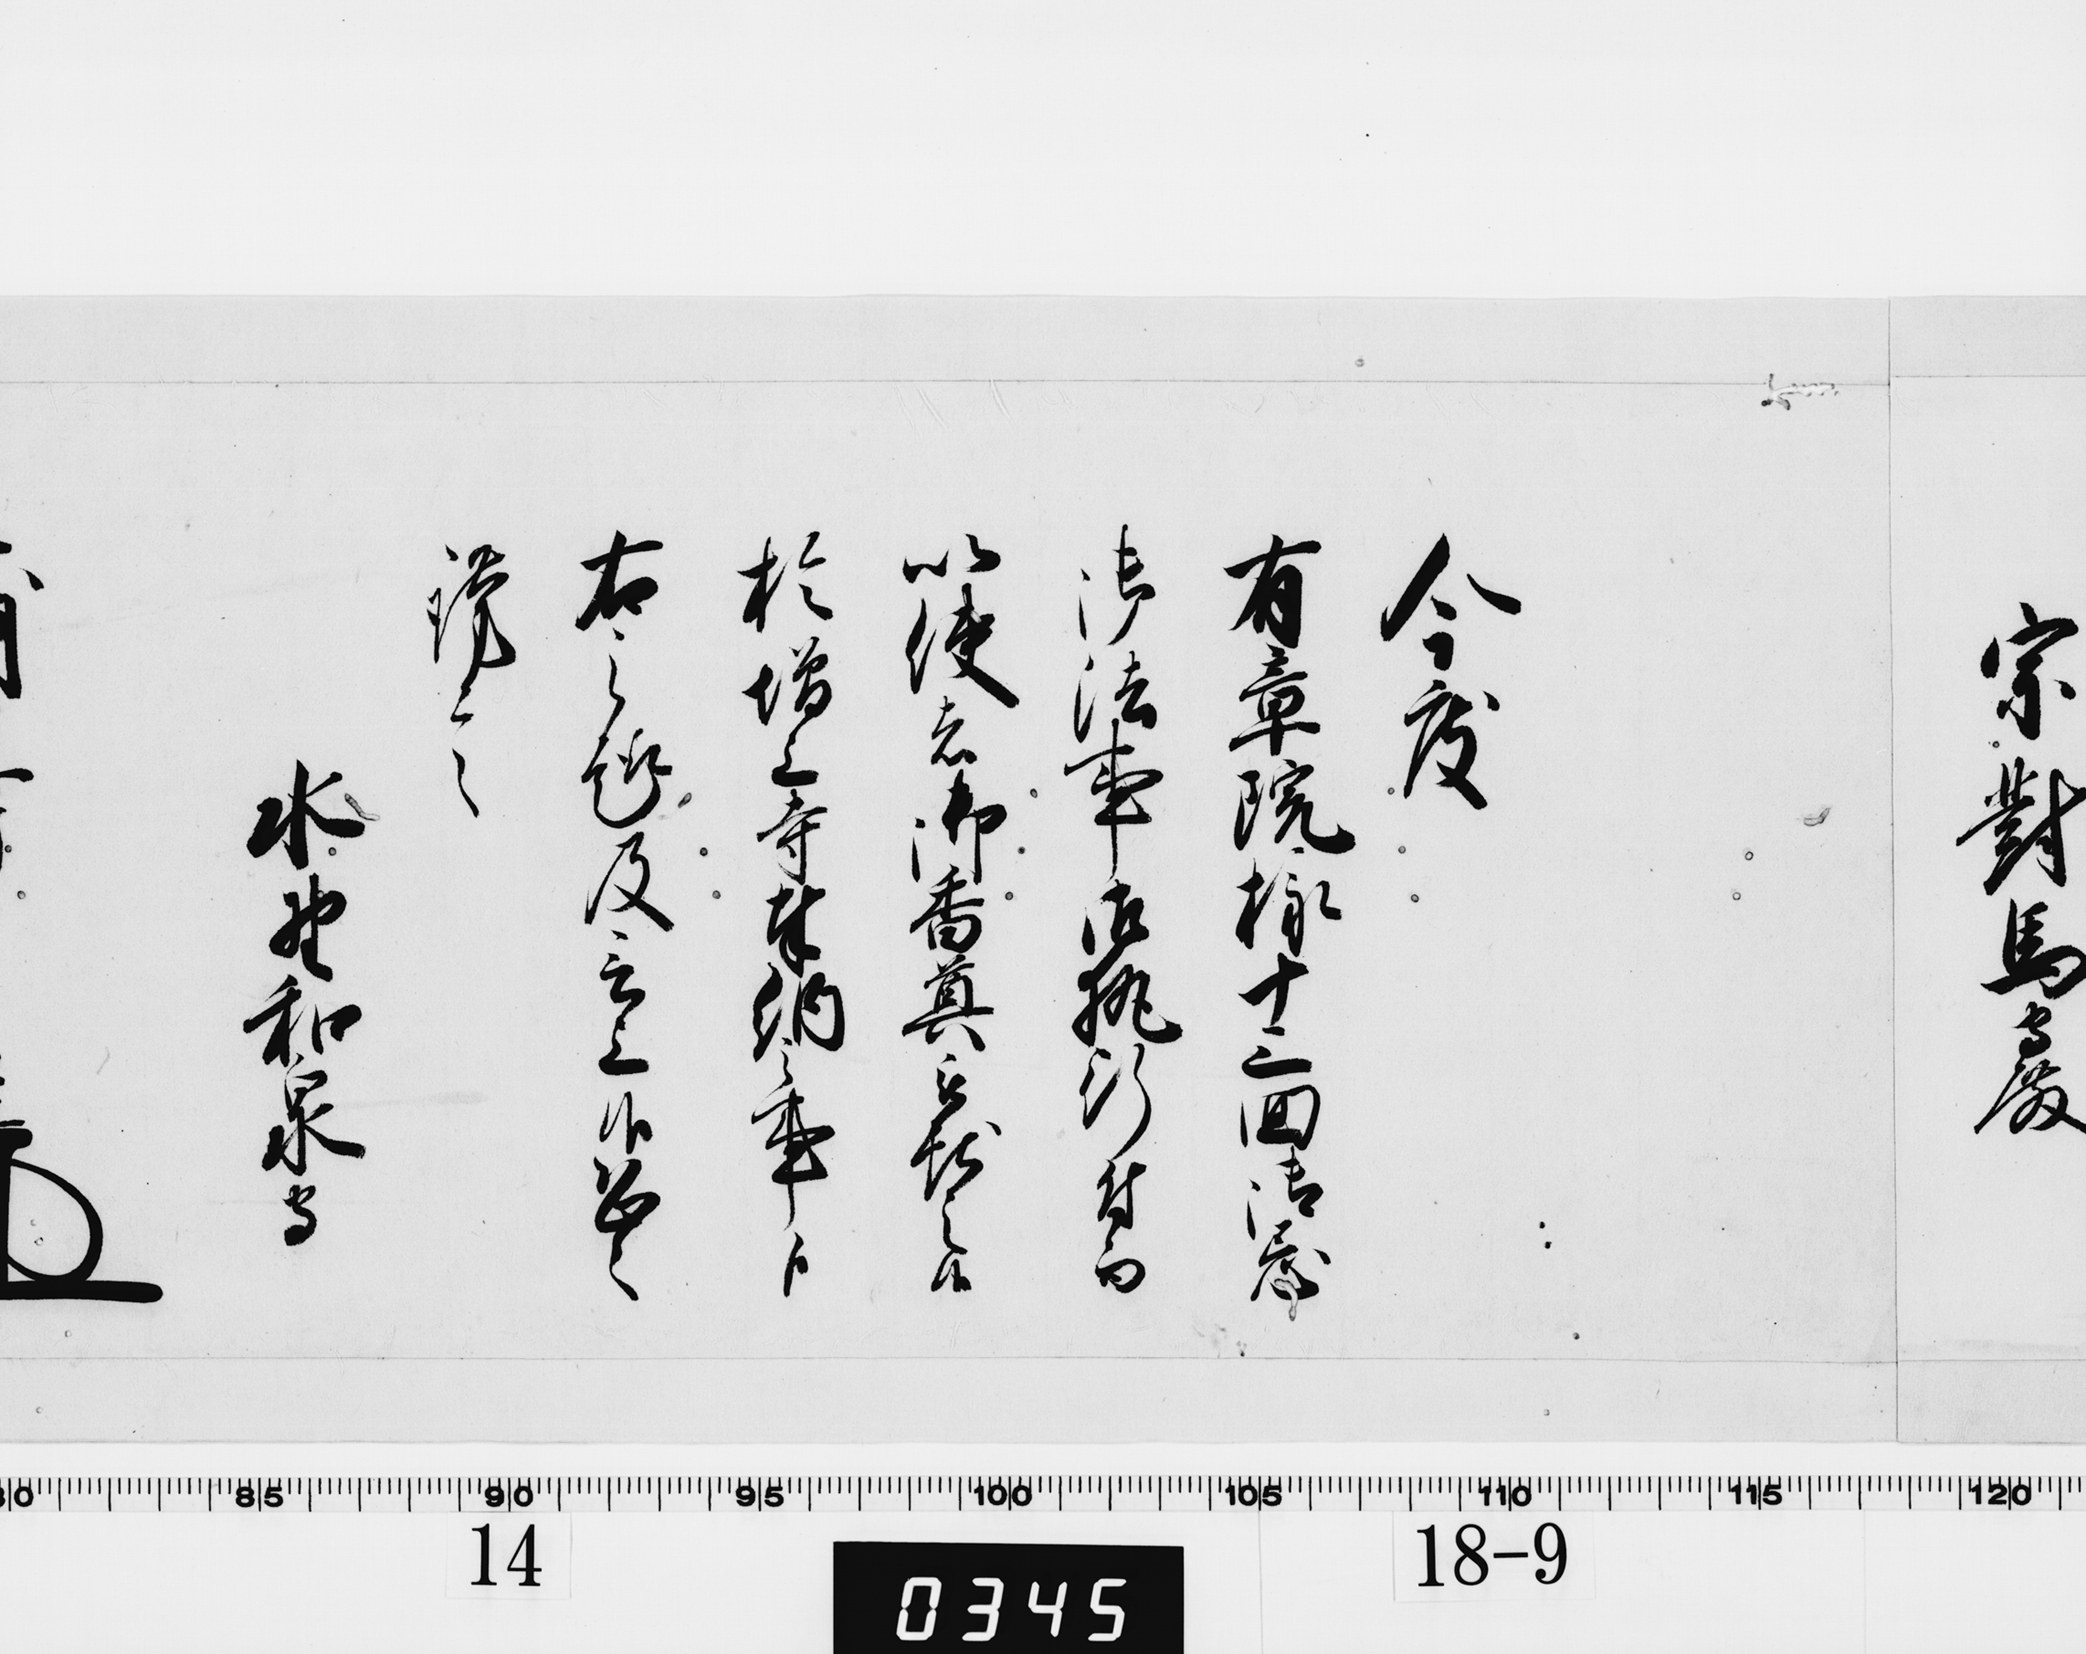 宗對馬守殿
今度
有章院様十三回御忌
御法事御執行付而
以使者御香奠
於増上寺奉納之事候
右之趣及言上候恐々
謹言
水野和泉守
80 85 90 95 100 105 110 115 120
14
18-9
0345